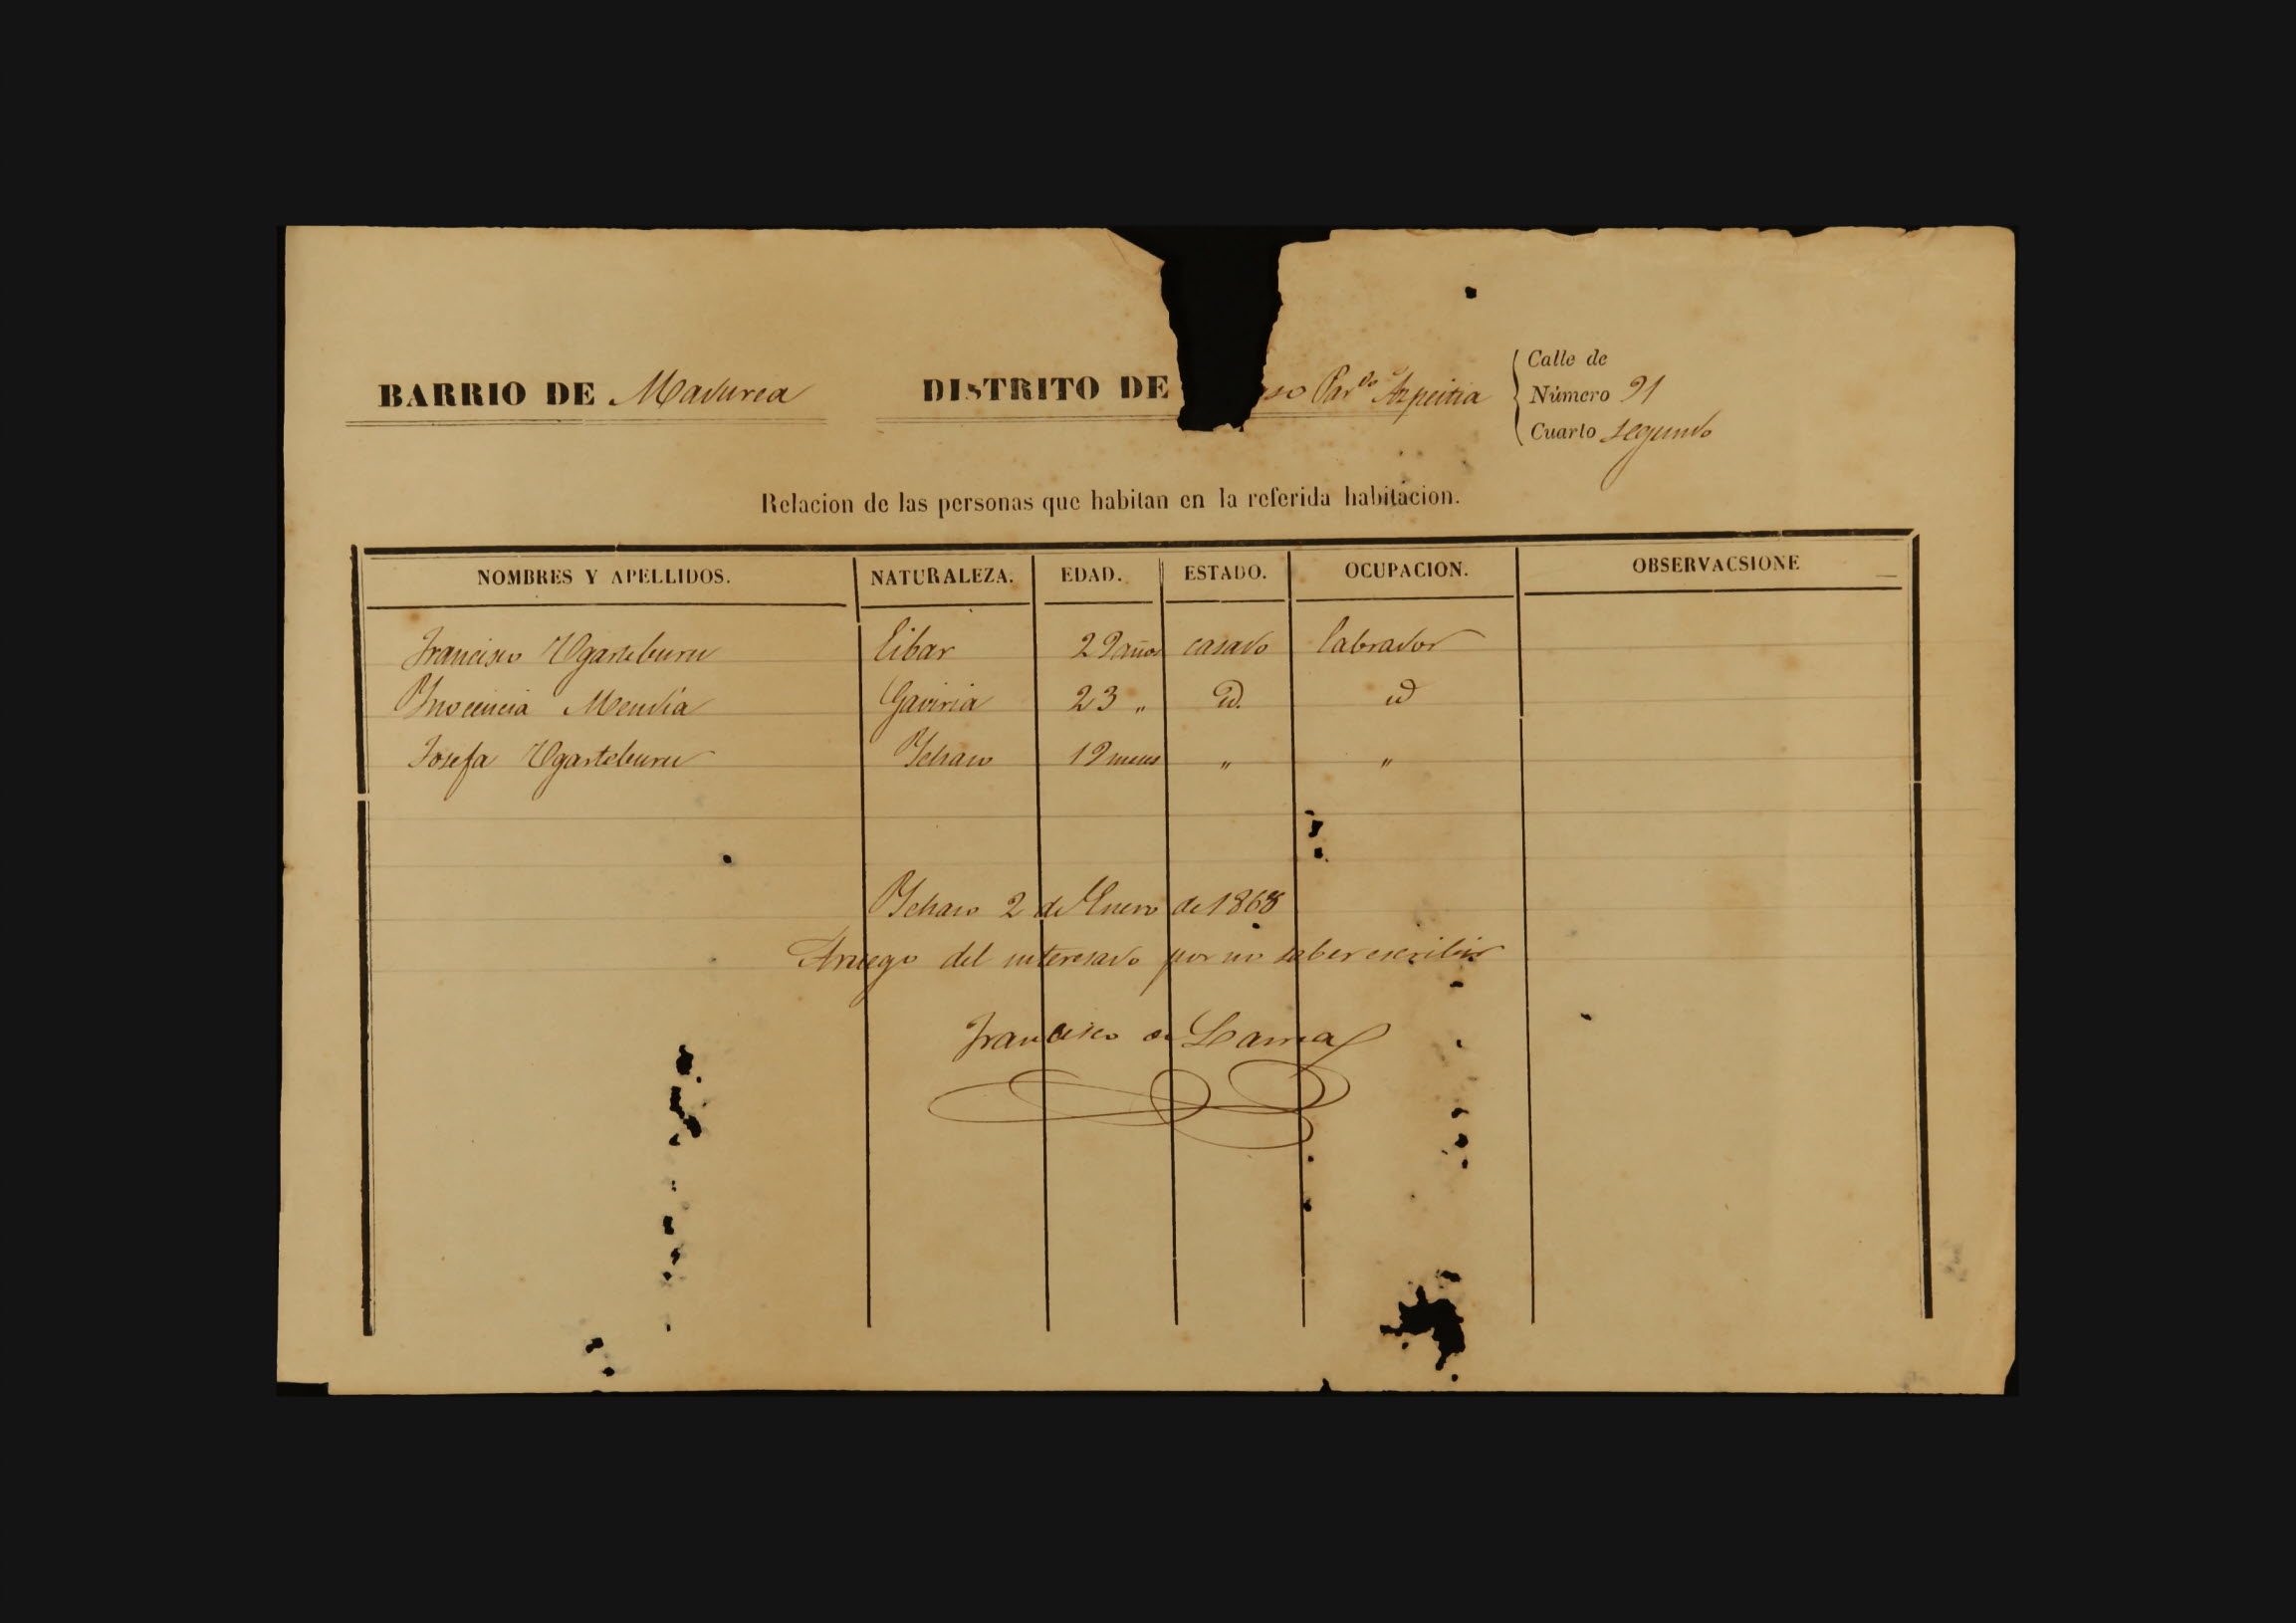 BARRIO DE Madurea DISTRITO DE so Par.do Azpeitia
Calle de
Número 91
Cuarto segundo
Relacion de las personas que habitan en la referida habitacion.
NOMBRES Y APELLIDOS. NATURALEZA. EDAD. ESTADO. OCUPACION. OBSERVACSIONE
Francisco Ugarteburu Eibar 29 años casado labrador
Ynocencia Mendía Gaviria 23 " id. id
Josefa Ugarteburu Ychaso 19 meses " "
Ychaso 2 de Enero de 1868
Aruego del interesado por no saber escribir
Francisco de Larrea